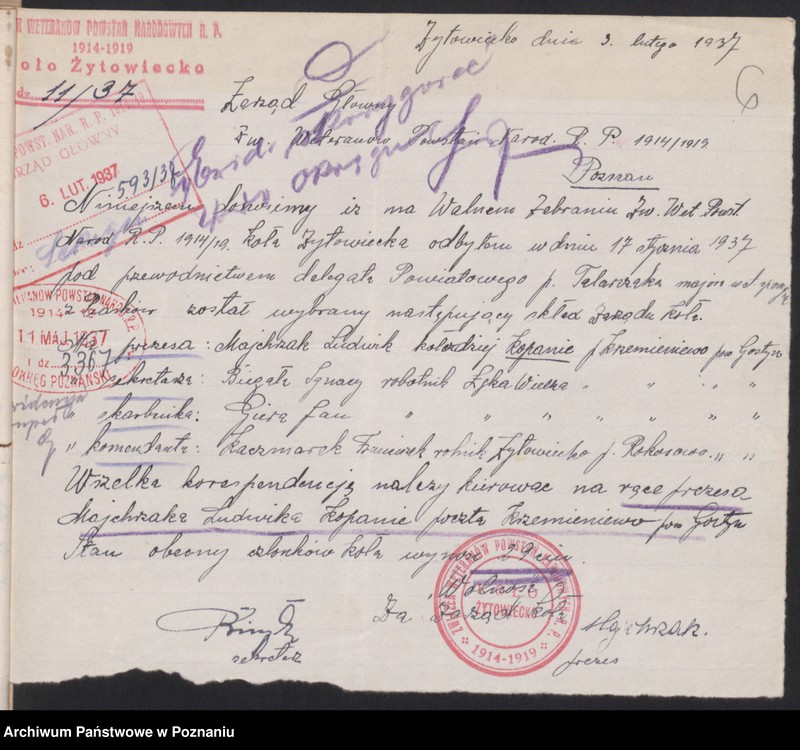 WETERANÓW POWSTAŃ NARODOWYCH R. P.
1914-1919
Koło Żytowiecko
dz. 11/37
Żytowiecko dnia 3. lutego 1937
6
Zarząd Główny
Zw. Weteranów Powstań Narod. R. P. 1914/1919.
Poznań
POWST. NAR. R. P.
ZARZĄD GŁÓWNY
6. LUT. 1937
593/37
Niniejszem donosimy iż na Walnem Zebraniu Zw. Wet. Powst.
Narod. R. P. 1914/19. Koła Żytowiecka odbytem w dniu 17 stycznia 1937
pod przewodnictwem delegata Powiatowego p. Talarczaka
został wybrany następujący skład Zarządu Koła.
WETERANÓW POWSTAŃ NAROD. R. P.
11 MAJ 1937
L dz. 3367
OKRĘG POZNAŃSKI
prezesa: Majchrzak Ludwik kołodziej Kopanie p. Krzemieniewo pow Gostyń
" sekretarza: Biegała Ignacy robotnik Łęka Wielka " " " "
" skarbnika: Giera Jan " " " " " "
" komendanta: Kaczmarek Franciszek rolnik Żytowiecko p. Rokosowo " "
Wszelką korespondencję należy kierować na ręce prezesa
Majchrzaka Ludwika Kopanie poczta Krzemieniewo pow Gostyń
Stan obecny członków koła wynosi
"Wolność"
Za Zarząd Koła
Majchrzak.
sekretarz
prezes
ZWIĄZEK WETERANÓW POWSTAŃ NARODOWYCH R. P.
KOŁO
ŻYTOWIECKO
1914-1919
Archiwum Państwowe w Poznaniu